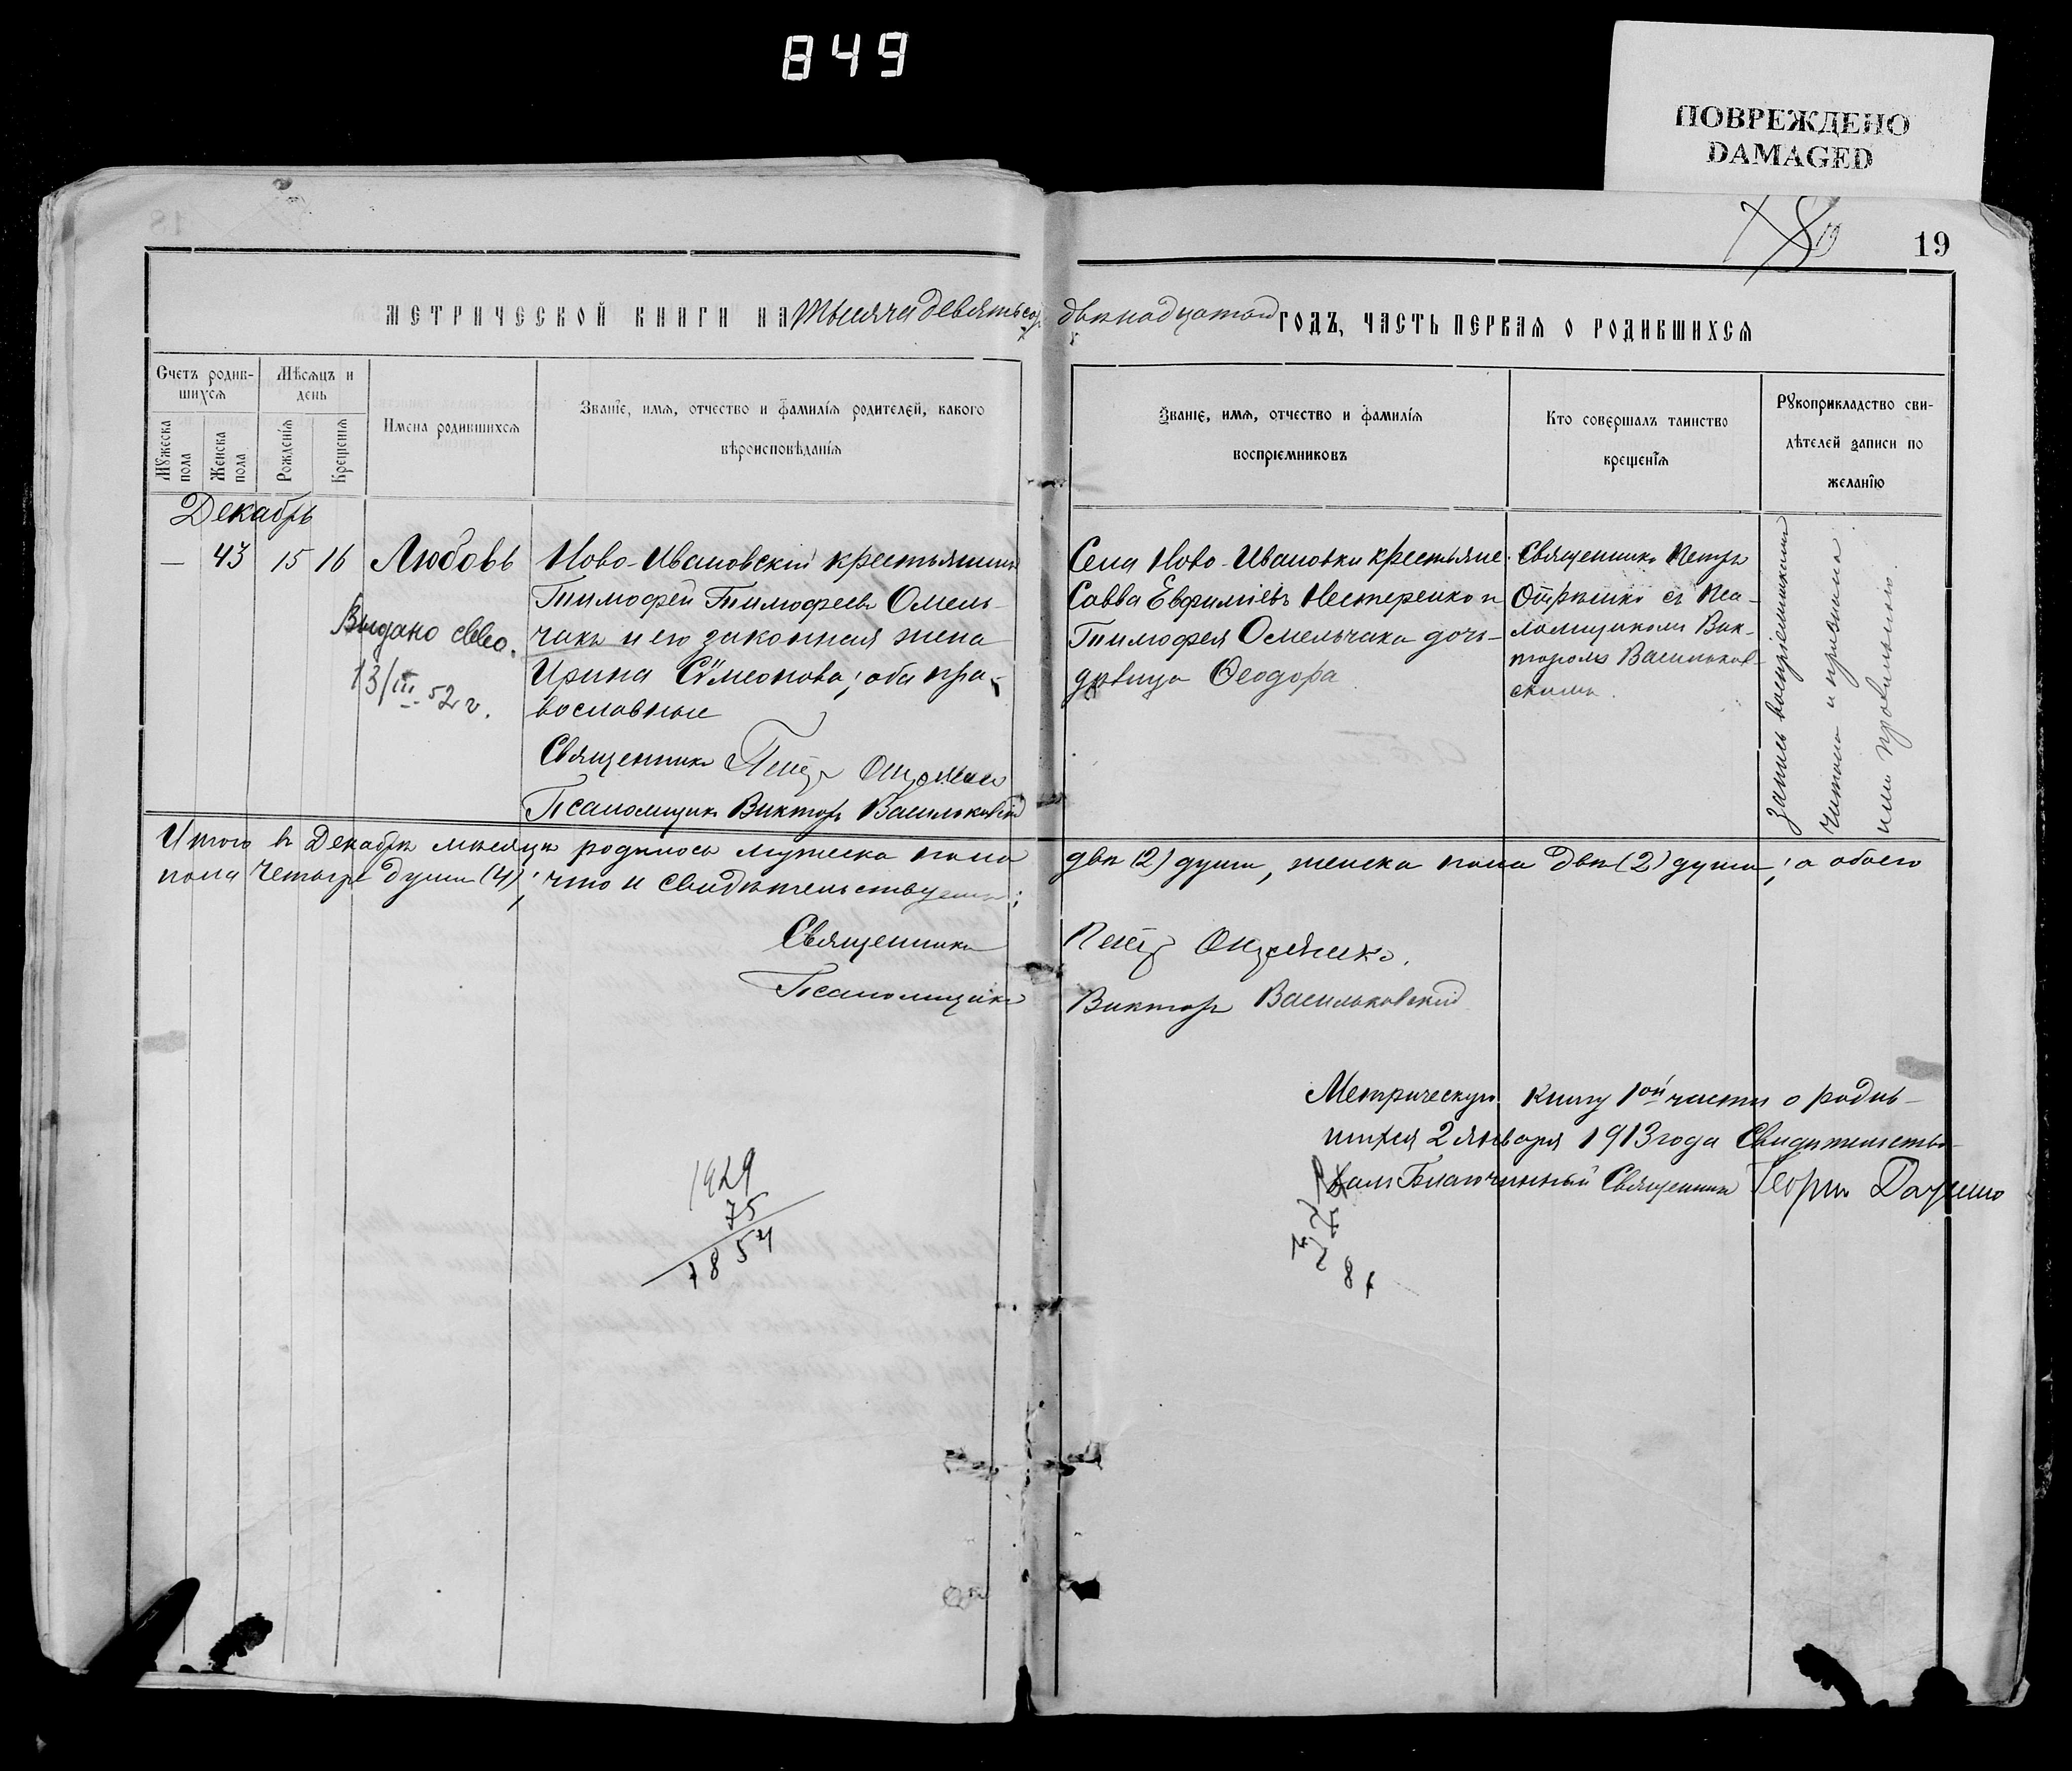 849
ПОВРЕЖДЕНО
DAMAGED
19
19
МЕТРИЧЕСКОЙ КНИГИ НА тысяча девятьсот двѣнадцатый ГОДЪ, ЧАСТЬ ПЕРВАЯ О РОДИВШИХСЯ
Счетъ родив-
шихся
Мужеска
пола
Женска
пола
Мѣсяцъ и
день
Рожденія
Крещенія
Имена родившихся
Званіе, имя, отчество и фамилія родителей, какого
вѣроисповѣданія
Званіе, имя, отчество и фамилія
воспріемниковъ
Кто совершалъ таинство
крещенія
Рукоприкладство сви-
дѣтелей записи по
желанію
Декабрь
— 43 15 16 Любовь
Выдано свво.
13/III 52 г.
Ново-Ивановскій крестьянинъ
Тимофей Тимофеевъ Омель-
чакъ и его законная жена
Ирина Сѵмеонова; оба пра-
вославные
Священникъ Петръ
Псаломщикъ Викторъ Васильковскій
Села Ново-Ивановки крестьяне
Савва Евфиміевъ Нестеренко и
Тимофея Омельчака дочь-
дѣвица Ѳеодора
Священникъ Петръ
съ Пса-
ломщикомъ Вик-
торомъ Васильков-
скимъ.
Запись воспріемниками
читана и признана
ими правильною.
Итого въ Декабрѣ мѣсяцѣ родилось мужеска пола двѣ (2) души, женска пола двѣ (2) души; а обоего
пола четыре души (4); что и свидѣтельствуемъ;
Священникъ Петръ
Псаломщикъ Викторъ Васильковскій
Метрическую книгу 1ой части о родив-
шихся 2 января 1913 года Свидѣтельство-
валъ Благочинный Священникъ Георгій
1929
75
1854